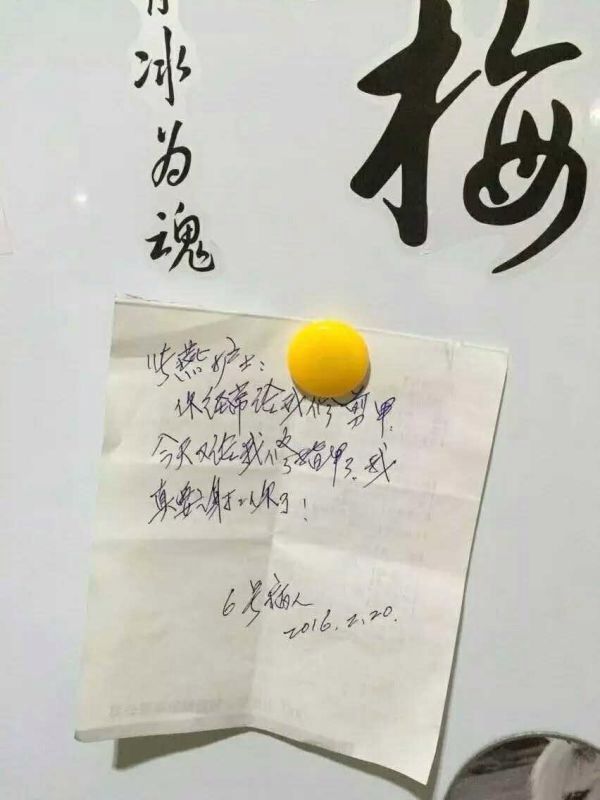 梅
冰为魂
燕护士:
你经常给我修剪甲,
今天又给我修指甲了,我
真要谢谢你了!
6号病人
2016.2.20.